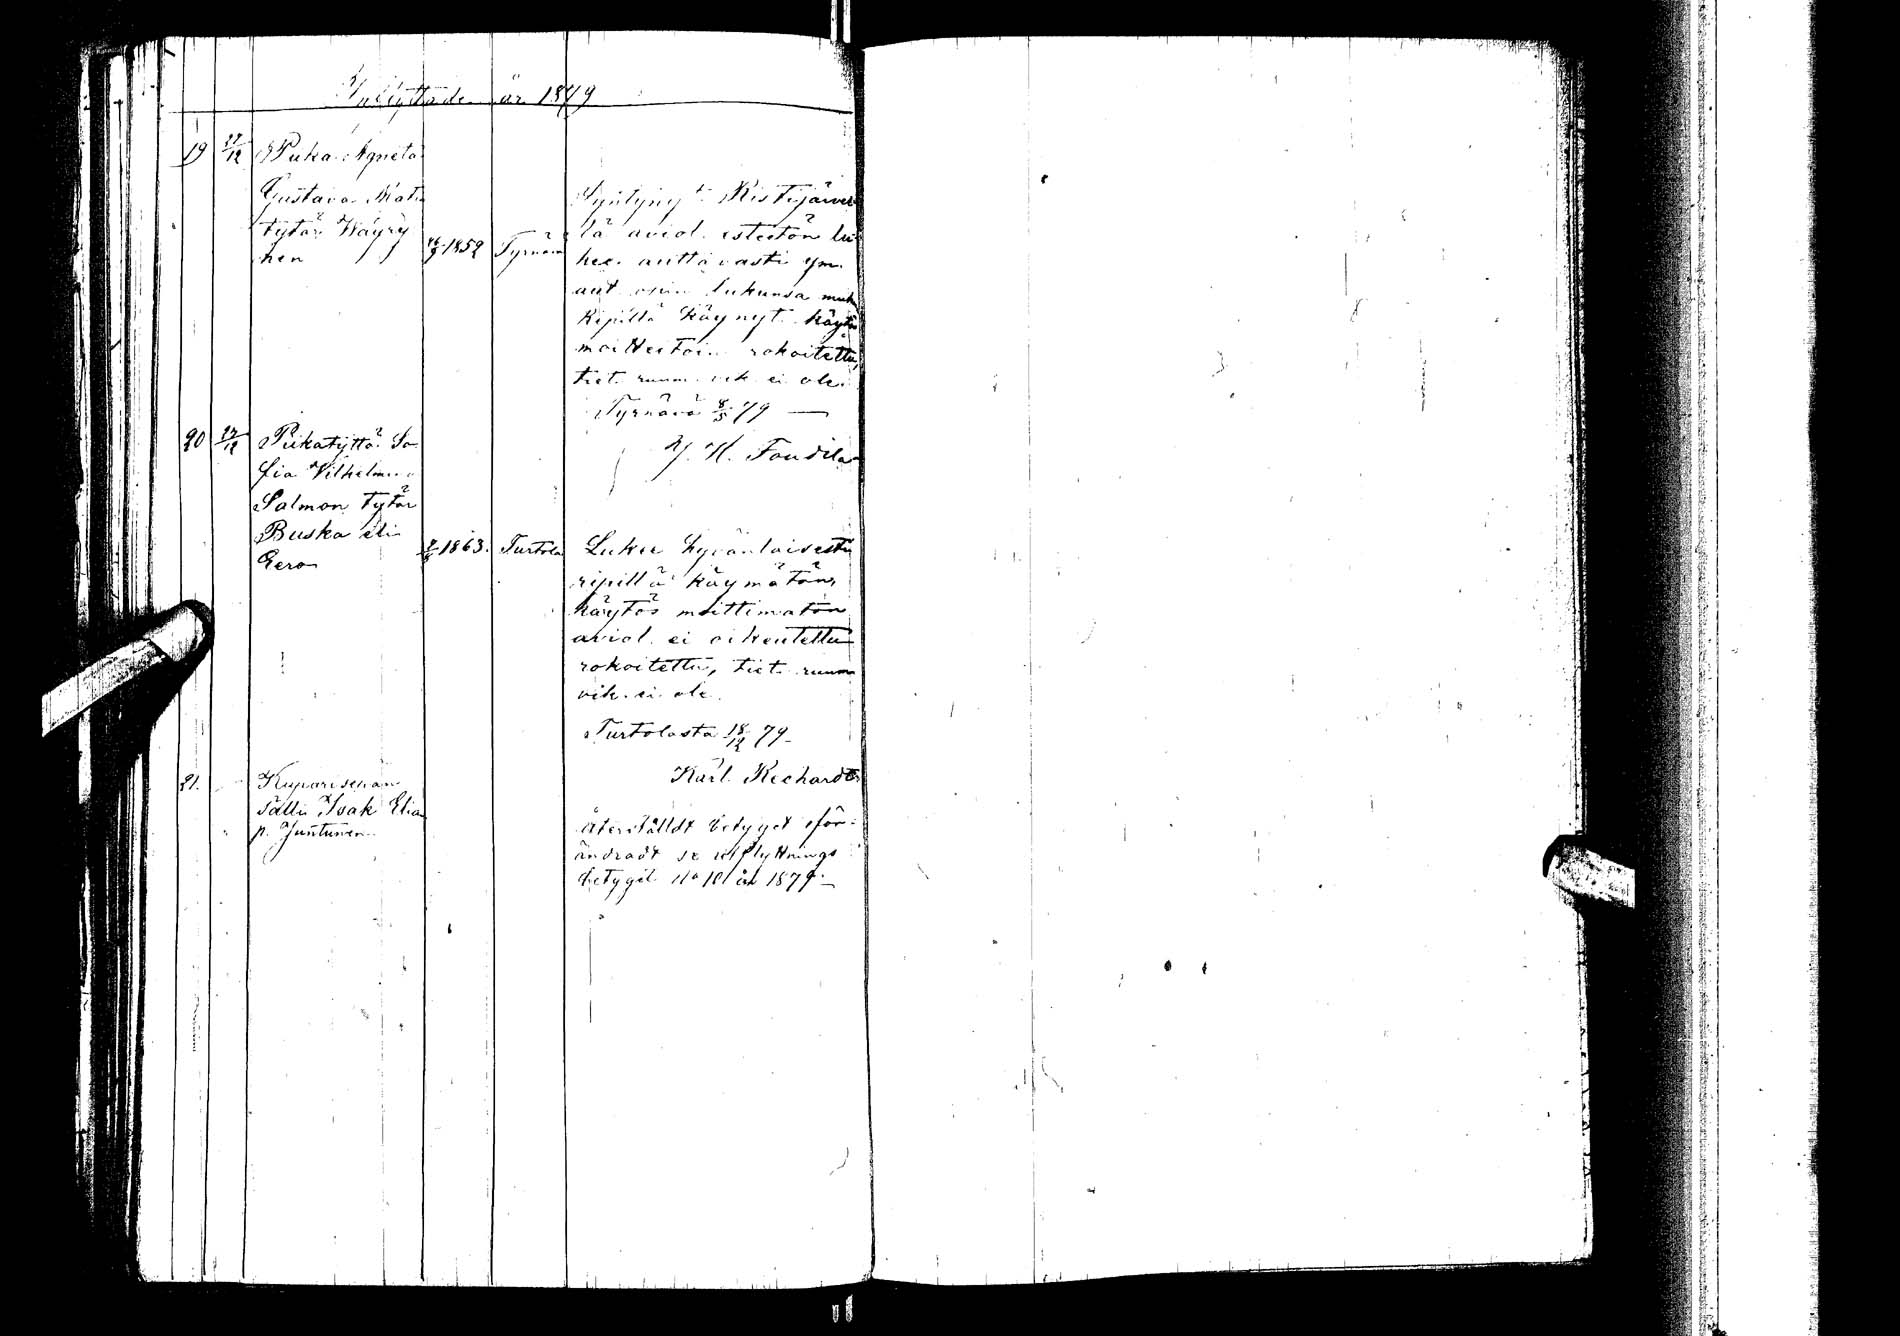 Inflyttade år 1879
19 27/12 Piika Agneta
Gustava Matin
tytär Wäyry
nen
16/9 1859 Tyrnävä
Syntynyt Ristijärvel
lä aviol. esteetön lu
kee auttavasti ym.
aut. opin lukunsa muk.
Ripillä käynyt käytös
moitteetoin rokoitettu,
tiet. ruum. vik. ei ole.
Tyrnävä 8/5 79
H. Foudila
20 27/12 Piikatyttö So
fia Vilhelmina
Salmon tytär
Buska eli
Eero
1863. Turtola
Lukee hyvänlaisesti
ripillä käymätön,
käytös moittimaton
aviol. ei oikeutettu
rokoitettu, tiet. ruum
vik. ei ole.
Turtolasta 18/12 79
Karl Rechardt
21. Kuparisepän
sälli Isak Elian
p. Juntunen
Återställdt betyget oför-
ändradt se utflyttnings
betyget No 101 år 1879